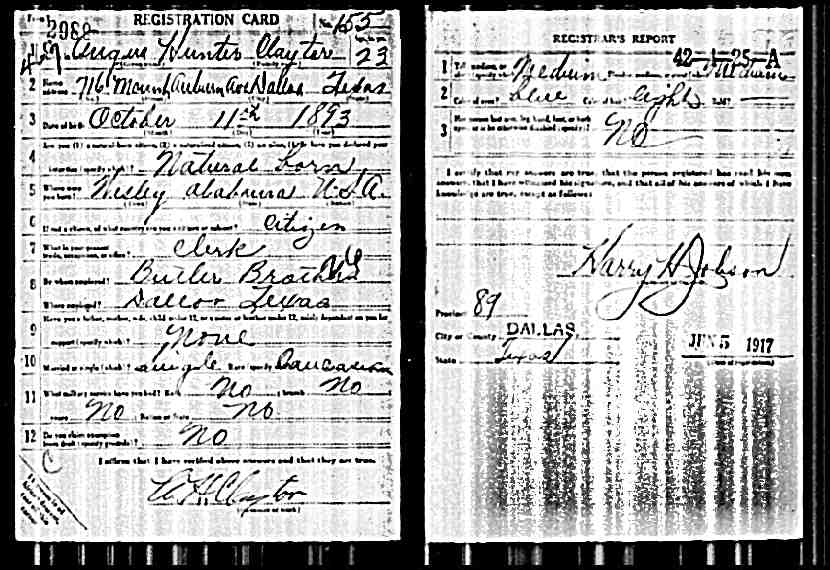 REGISTRATION CARD No. 155
2988
Angus Hunter Clayton 23
2 Home address 716 Mount Auburn Ave Dallas Texas
3 Date of birth October 11th 1893
4
Natural born
5 Where were you born? Alabama U.S.A.
6 If not a citizen, of what country are you a citizen or subject? Citizen
7 What is your present trade, occupation, or office? Clerk
8 By whom employed? Butler Brothers
Where employed? Dallas Texas
9 Have you a father, mother, wife, child under 12, or a sister or brother under 12, solely dependent on you for
support (specify which)? None
10 Married or single (which)? single Race (specify which)? Caucasian
11 What military service have you had? Rank No branch No
years No Nation or State No
12 Do you claim exemption from draft (specify grounds)? No
I affirm that I have verified above answers and that they are true.
A H Clayton
REGISTRAR'S REPORT
42-1-25-A
1 Medium Medium
2 Color of eyes? blue Color of hair? light Bald?
3 Has person lost arm, leg, hand, foot, or both eyes, or is he otherwise disabled (specify)?
No
I certify that my answers are true, that the person registered has read his own
answers, that I have witnessed his signature, and that all of his answers of which I have
knowledge are true, except as follows:
Harry H Jobson
Precinct 89
City or County DALLAS,
State Texas
JUN 5 1917
(Date of registration)